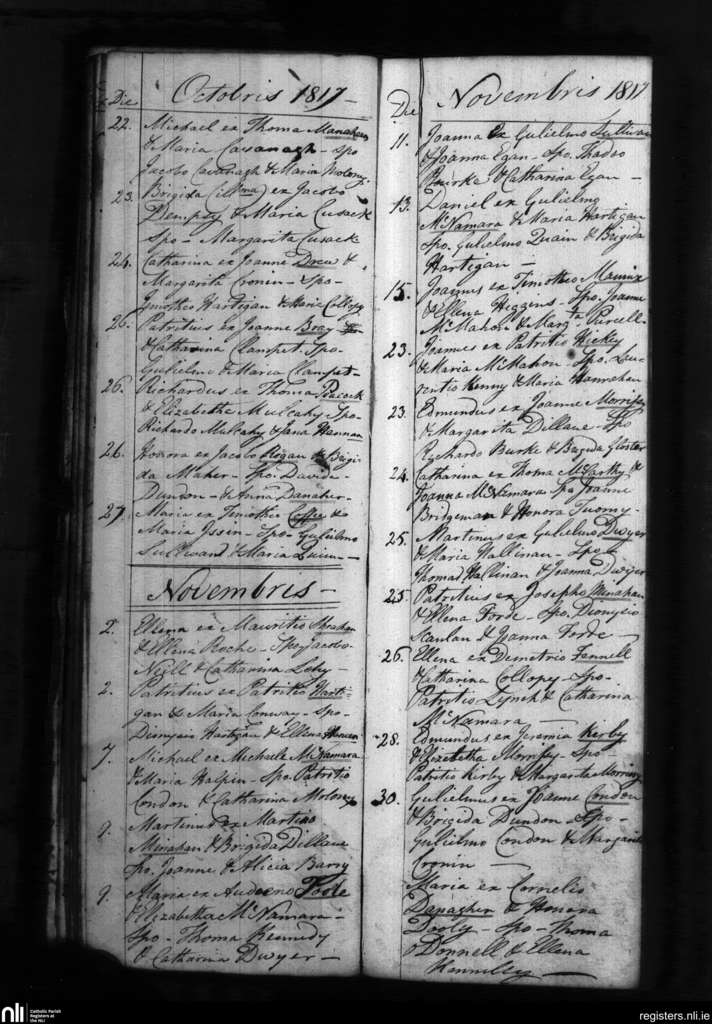 Die Octobris 1817 -
22. Michael ex Thoma Manahan
& Maria Cavanagh - Spo
Jacobo Cavanagh & Maria Molony.
23. Brigida (illma) ex Jacobo
Dempsy & Maria Cusack
Spo - Margarita Cusack
24. Catharina ex Joanne Drew &
Margarita Cronin - Spo -
Timotheo Hartigan & Maria Collopy
26. Patritius ex Joanne Bray
& Catharina Clampet - Spo -
Gulielmo & Maria Clampet -
26. Richardus ex Thoma Peacock
& Elizabetha Mulcahy Spo -
Richardo Mulcahy & Jana Hannan
26. Honora ex Jacobo Hogan & Brigi-
da Maher - Spo. Davide
Dundon - & Anna Danaher -
27 Maria ex Timotheo Coffee &
Maria - Spo - Gulielmo
Sullivan & Maria Quin -
Novembris -
2. Ellena ex Mauritio
& Ellena Roche - Spo Jacobo
Neill & Catharina Lehy -
2. Patritius ex Patritio Harti-
gan & Maria Conway - Spo -
Dionysio Hartigan & Ellena
7. Michael ex Michaele McNamara
& Maria Halpin - Spo. Patritio
Condon & Catharina Molony
9. Martinus ex Martino
Minahan & Brigida Dillane
Spo. Joanne & Alicia Barry
9. Maria ex Toole
& Elizabetha McNamara -
Spo - Thoma Kennedy
& Catharina Dwyer -
Die Novembris 1817
11. Joanna ex Gulielmo Sullivan
& Joanna Egan - Spo. Thadeo
Bourke & Catharina Egan -
13. Daniel ex Gulielmo
McNamara & Maria Hartigan
Spo. Gulielmo Quain & Brigida
Hartigan -
15. Joannes ex Timotheo
& Ellena Higgens - Spo. Joanne
McMahon & Margta Purcell -
23. Joannes ex Patritio Hickey
& Maria McMahon Spo. Lau-
rentio Kenny & Maria Hanrahan
23. Edmundus ex Joanne Morrissy
& Margarita Dillane - Spo
Richardo Burke & Brigida
24. Catharina ex Thoma McCarthy &
Joanna McNamara Spo Joanne
Bridgeman & Honora Twomy -
25. Martinus ex Gulielmo Dwyer
& Maria Hallinan - Spo -
Thoma Hallinan & Joanna Dwyer
25 Patritius ex Josepho Minahan
& Ellena Forde - Spo. Dionysio
Scanlan & Joanna Forde -
26. Ellena ex Demetrio Fennell
& Catharina Collopy - Spo -
Patritio Lynch & Catharina
McNamara -
28. Edmundus ex Jeremia Kirby
& Elizabetha Morrissy - Spo
Patritio Kirby & Margarita
30. Gulielmus ex Joanne Condon
& Brigida Dundon - Spo -
Gulielmo Condon & Margarita
Cronin -
Maria ex Cornelio
Danagher & Honora
Dooly - Spo - Thoma
O'Donnell & Ellena
Kennelly -
nli Catholic Parish
Registers at
the NLI
registers.nli.ie